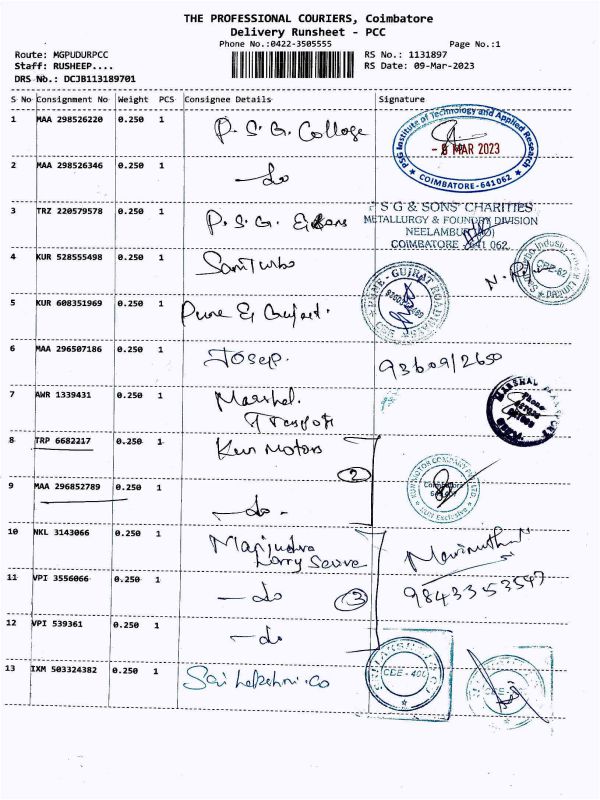 THE PROFESSIONAL COURIERS, Coimbatore
Delivery Runsheet - PCC
Phone No.:0422-3505555 Page No.:1
Route: MGPUDURPCC RS No.: 1131897
Staff: RUSHEEP.... RS Date: 09-Mar-2023
DRS No.: DCJB113189701
S No Consignment No Weight PCS Consignee Details Signature
1 MAA 298526220 0.250 1 P. S. G. College
PSG Institute of Technology and Applied Research
MAR 2023
* COIMBATORE-641062 *
2 MAA 298526346 0.250 1 -do
3 TRZ 220579578 0.250 1 P. S. G. & Sons
P S G & SONS' CHARITIES
METALLURGY & FOUNDRY DIVISION
NEELAMBUR (PO)
COIMBATORE 641 062
4 KUR 528555498 0.250 1 Sani Turbo
CBE-62
5 KUR 608351969 0.250 1 Pune & Gujrat.
PUNE - GUJRAT ROAD
6 MAA 296507186 0.250 1 Josep.
7 AWR 1339431 0.250 1 Marshal.
MARSHAL
8 TRP 6682217 0.250 1 Kun Motors
2
KUN MOTOR COMPANY PVT LTD
9 MAA 296852789 0.250 1 -do-
10 NKL 3143066 0.250 1
Lorry
11 VPI 3556066 0.250 1 -do
3
9843353547
12 VPI 539361 0.250 1 -do
13 IXM 503324382 0.250 1 Sai Lakshmi. Co